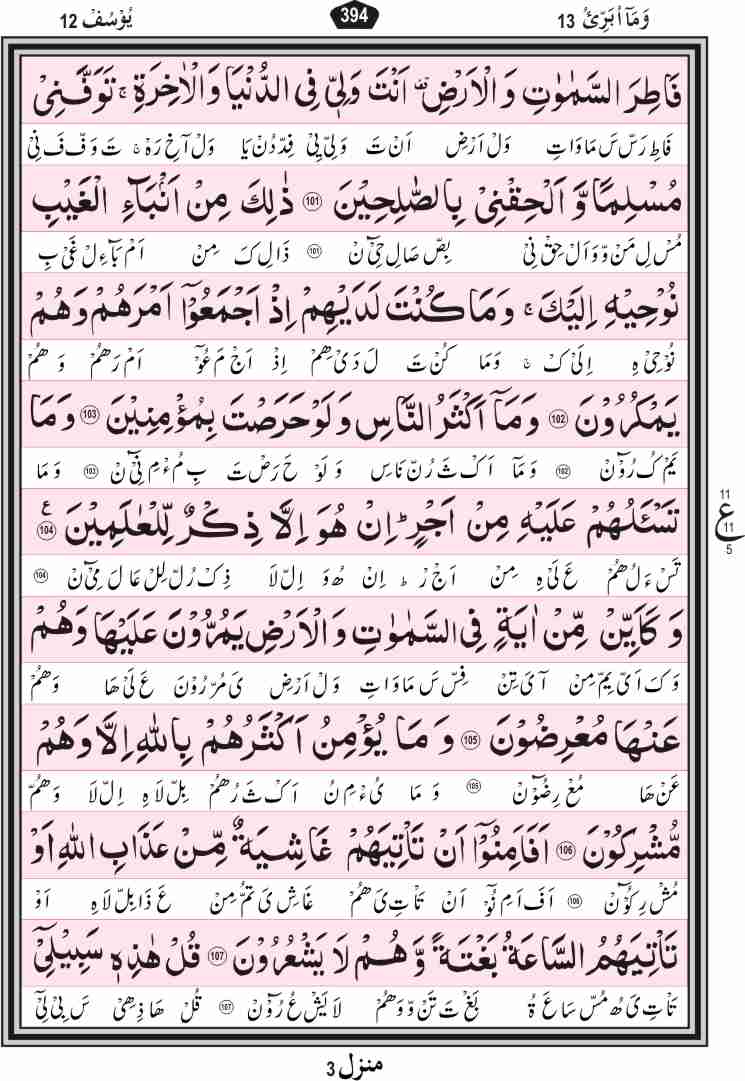 وَمَآ اُبَرِّئُ 13
394
يُوْسُفْ 12
فَاطِرَ السَّمٰوٰتِ وَ الْاَرْضِ ۣ اَنْتَ وَلِيّٖ فِي الدُّنْيَا وَالْاٰخِرَةِ ۚ تَوَفَّنِيْ
فَاطِ رَسّ سَ مَا وَاتِ وَلْ اَرْضِ اَنْ تَ وَلِىّ يِىْ فِدّ دُنْ يَا وَلْ آ خِ رَهْ ۚ تَ وَفّ فَ نِىْ
مُسْلِمًا وَّ اَلْحِقْنِيْ بِالصّٰلِحِيْنَ 101 ذٰلِكَ مِنْ اَنْۢبَآءِ الْغَيْبِ
مُسْ لِ مَنْ وَّ وَ اَلْ حِقْ نِىْ بِصّ صَالِ حِىْٓ نْ 101 ذَالِ كَ مِنْ اَمْ بَآءِ لْ غَىْ بِ
نُوْحِيْهِ اِلَيْكَ ۚ وَمَا كُنْتَ لَدَيْهِمْ اِذْ اَجْمَعُوْٓا اَمْرَهُمْ وَهُمْ
نُوْحِىْ هِ اِلَىْ كْ ۚ وَمَا كُنْ تَ لَ دَىْ هِمْ اِذْ اَجْ مَ عُوْٓ اَمْ رَهُمْ وَ هُمْ
يَمْكُرُوْنَ 102 وَمَآ اَكْثَرُ النَّاسِ وَلَوْ حَرَصْتَ بِمُؤْمِنِيْنَ 103 وَمَا
يَمْ كُ رُوْٓ نْ 102 وَ مَآ اَكْ ثَ رُنّ نَاسِ وَ لَوْ حَ رَصْ تَ بِ مُ ءْ مِ نِىْٓ نْ 103 وَ مَا
تَسْـَٔلُهُمْ عَلَيْهِ مِنْ اَجْرٍ ؕ اِنْ هُوَ اِلَّا ذِكْرٌ لِّلْعٰلَمِيْنَ 104 ع
تَسْ ءَ لُ هُمْ عَ لَىْ هِ مِنْ اَجْ رْ ؕ اِنْ هُ وَ اِلّ لَا ذِكْ رُلّ لِلْ عَا لَ مِىْٓ نْ 104
11
ع
11
5
وَ كَاَيِّنْ مِّنْ اٰيَةٍ فِي السَّمٰوٰتِ وَ الْاَرْضِ يَمُرُّوْنَ عَلَيْهَا وَهُمْ
وَ كَ اَىْ يِمّ مِنْ آ ىَ تِنْ فِسّ سَ مَا وَاتِ وَلْ اَرْضِ ىَ مُرّ رُوْنَ عَ لَىْ هَا وَهُمْ
عَنْهَا مُعْرِضُوْنَ 105 وَ مَا يُؤْمِنُ اَكْثَرُهُمْ بِاللّٰهِ اِلَّا وَهُمْ
عَنْ هَا مُعْ رِضُوْٓ نْ 105 وَ مَا ىُءْ مِ نُ اَكْ ثَ رُ هُمْ بِلّ لَا هِ اِلّ لَا وَ هُمّ
مُّشْرِكُوْنَ 106 اَفَاَمِنُوْٓا اَنْ تَاْتِيَهُمْ غَاشِيَةٌ مِّنْ عَذَابِ اللّٰهِ اَوْ
مُشْ رِكُوْٓ نْ 106 اَفَ اَمِ نُوْٓ اَنْ تَاْتِ ىَ هُمْ غَاشِ ىَ تُمّ مِنْ عَ ذَا بِلّ لَا هِ اَوْ
تَاْتِيَهُمُ السَّاعَةُ بَغْتَةً وَّ هُمْ لَا يَشْعُرُوْنَ 107 قُلْ هٰذِهٖ سَبِيْلِيْٓ
تَاْتِ ىَ هُ مُسّ سَا عَ ةُ بَغْ تَ تَنْ وَّ وَهُمْ لَا يَشْ عُ رُوْٓ نْ 107 قُلْ هَا ذِهِىْ سَ بِىْ لِىْٓ
منزل 3